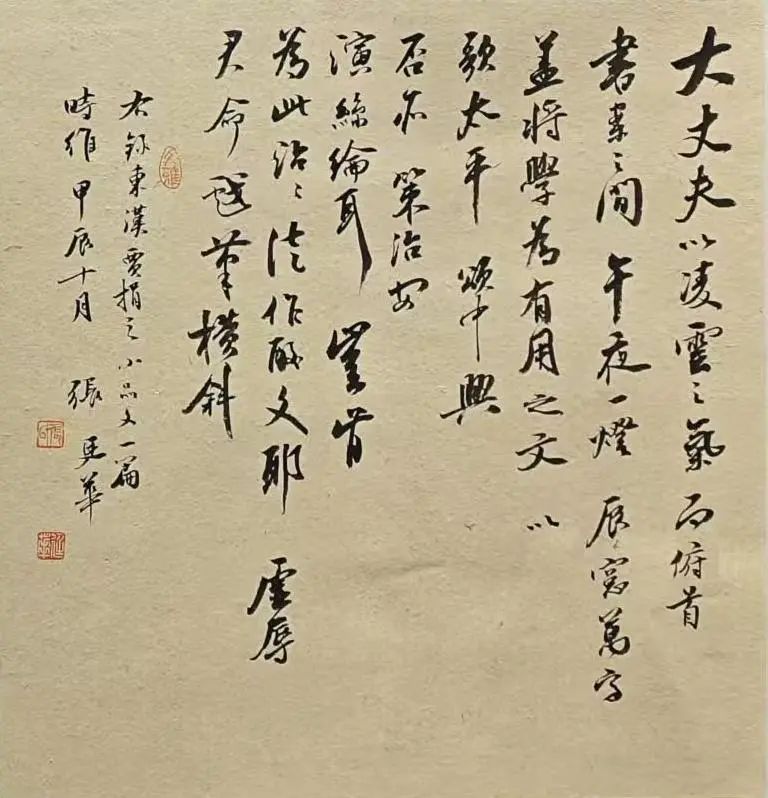 大丈夫以凌雲之氣而俯首
書案之間午夜一燈辰窓萬字
蓋將學為有用之文以
歌太平頌中興
否亦策治安
演絲綸耳豈肯
為此沾沾法作酸文耶虛辱
君命冠筆橫斜
右錄東漢賈捐之小品文一篇
時維甲辰十月張廷華